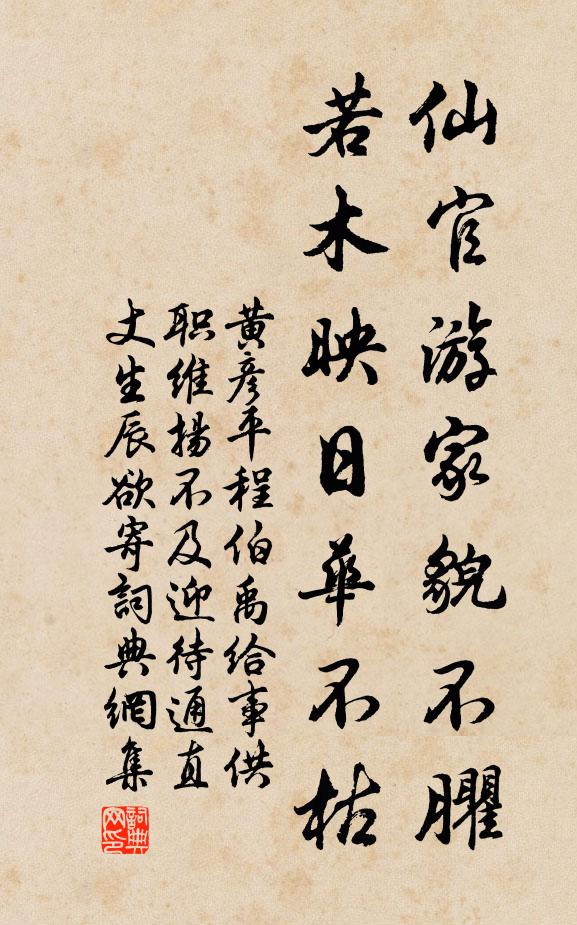 仙官游家貌不臞
若木映日華不枯
黃彥平程伯禹給事供
职維揚不及迎待通直
丈生辰欲寄詞典網集
詞典网印